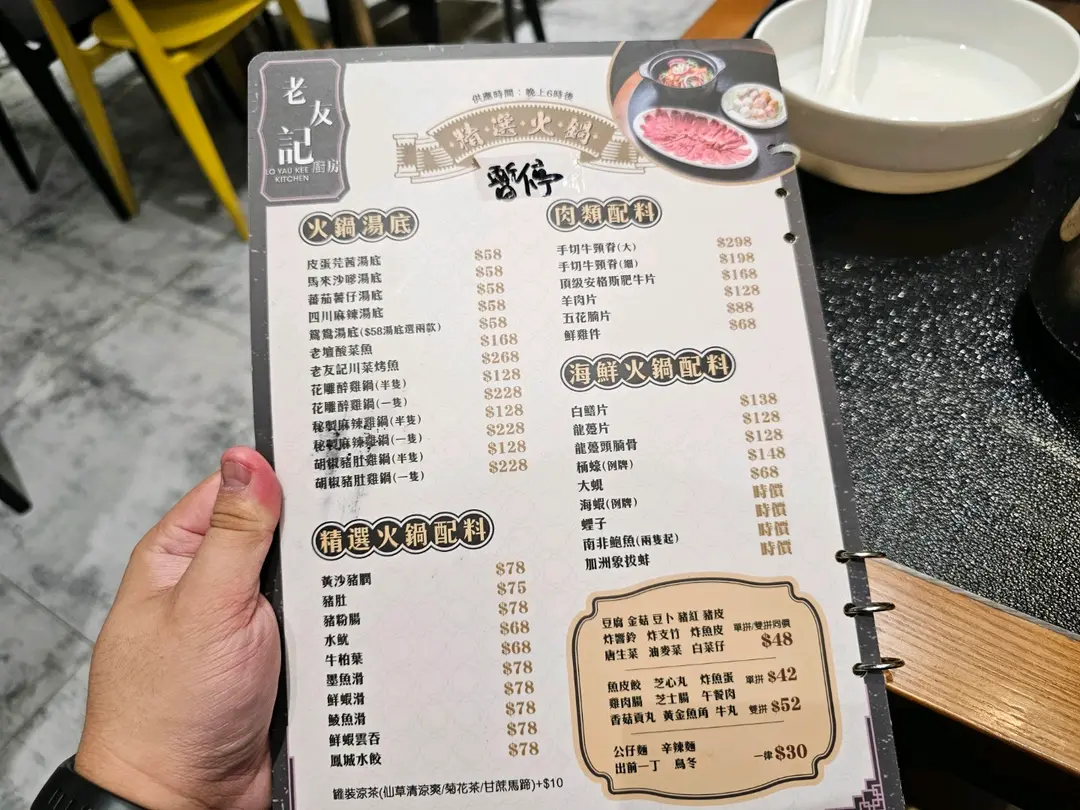 老友記
廚房
LO YAU KEE
KITCHEN
供應時間：晚上6時後
精·選·火·鍋
暫停
火鍋湯底
皮蛋芫茜湯底 $58
馬來沙嗲湯底 $58
蕃茄薯仔湯底 $58
四川麻辣湯底 $58
鴛鴦湯底($58湯底選兩款) $58
老壇酸菜魚 $168
老友記川菜烤魚 $268
花雕醉雞鍋(半隻) $128
花雕醉雞鍋(一隻) $228
秘製麻辣雞鍋(半隻) $128
秘製麻辣雞鍋(一隻) $228
胡椒豬肚雞鍋(半隻) $128
胡椒豬肚雞鍋(一隻) $228
精選火鍋配料
黃沙豬膶 $78
豬肚 $75
豬粉腸 $78
水魷 $68
牛柏葉 $68
墨魚滑 $78
鮮蝦滑 $78
鯪魚滑 $78
鮮蝦雲吞 $78
鳳城水餃 $78
罐裝涼茶(仙草清涼爽/菊花茶/甘蔗馬蹄)+$10
肉類配料
手切牛頸脊(大) $298
手切牛頸脊(細) $198
頂級安格斯肥牛片 $168
羊肉片 $128
五花腩片 $88
鮮雞件 $68
海鮮火鍋配料
白鱔片 $138
龍躉片 $128
龍躉頭腩骨 $128
桶蠔(例牌) $148
大蜆 $68
海蝦(例牌) 時價
蟶子 時價
南非鮑魚(兩隻起) 時價
加洲象拔蚌 時價
豆腐 金菇 豆卜 豬紅 豬皮
炸響鈴 炸支竹 炸魚皮 單拼/雙拼同價
唐生菜 油麥菜 白菜仔 $48
魚皮餃 芝心丸 炸魚蛋 單拼 $42
雞肉腸 芝士腸 午餐肉
香菇貢丸 黃金魚角 牛丸 雙拼 $52
公仔麵 辛辣麵
出前一丁 烏冬 一律 $30